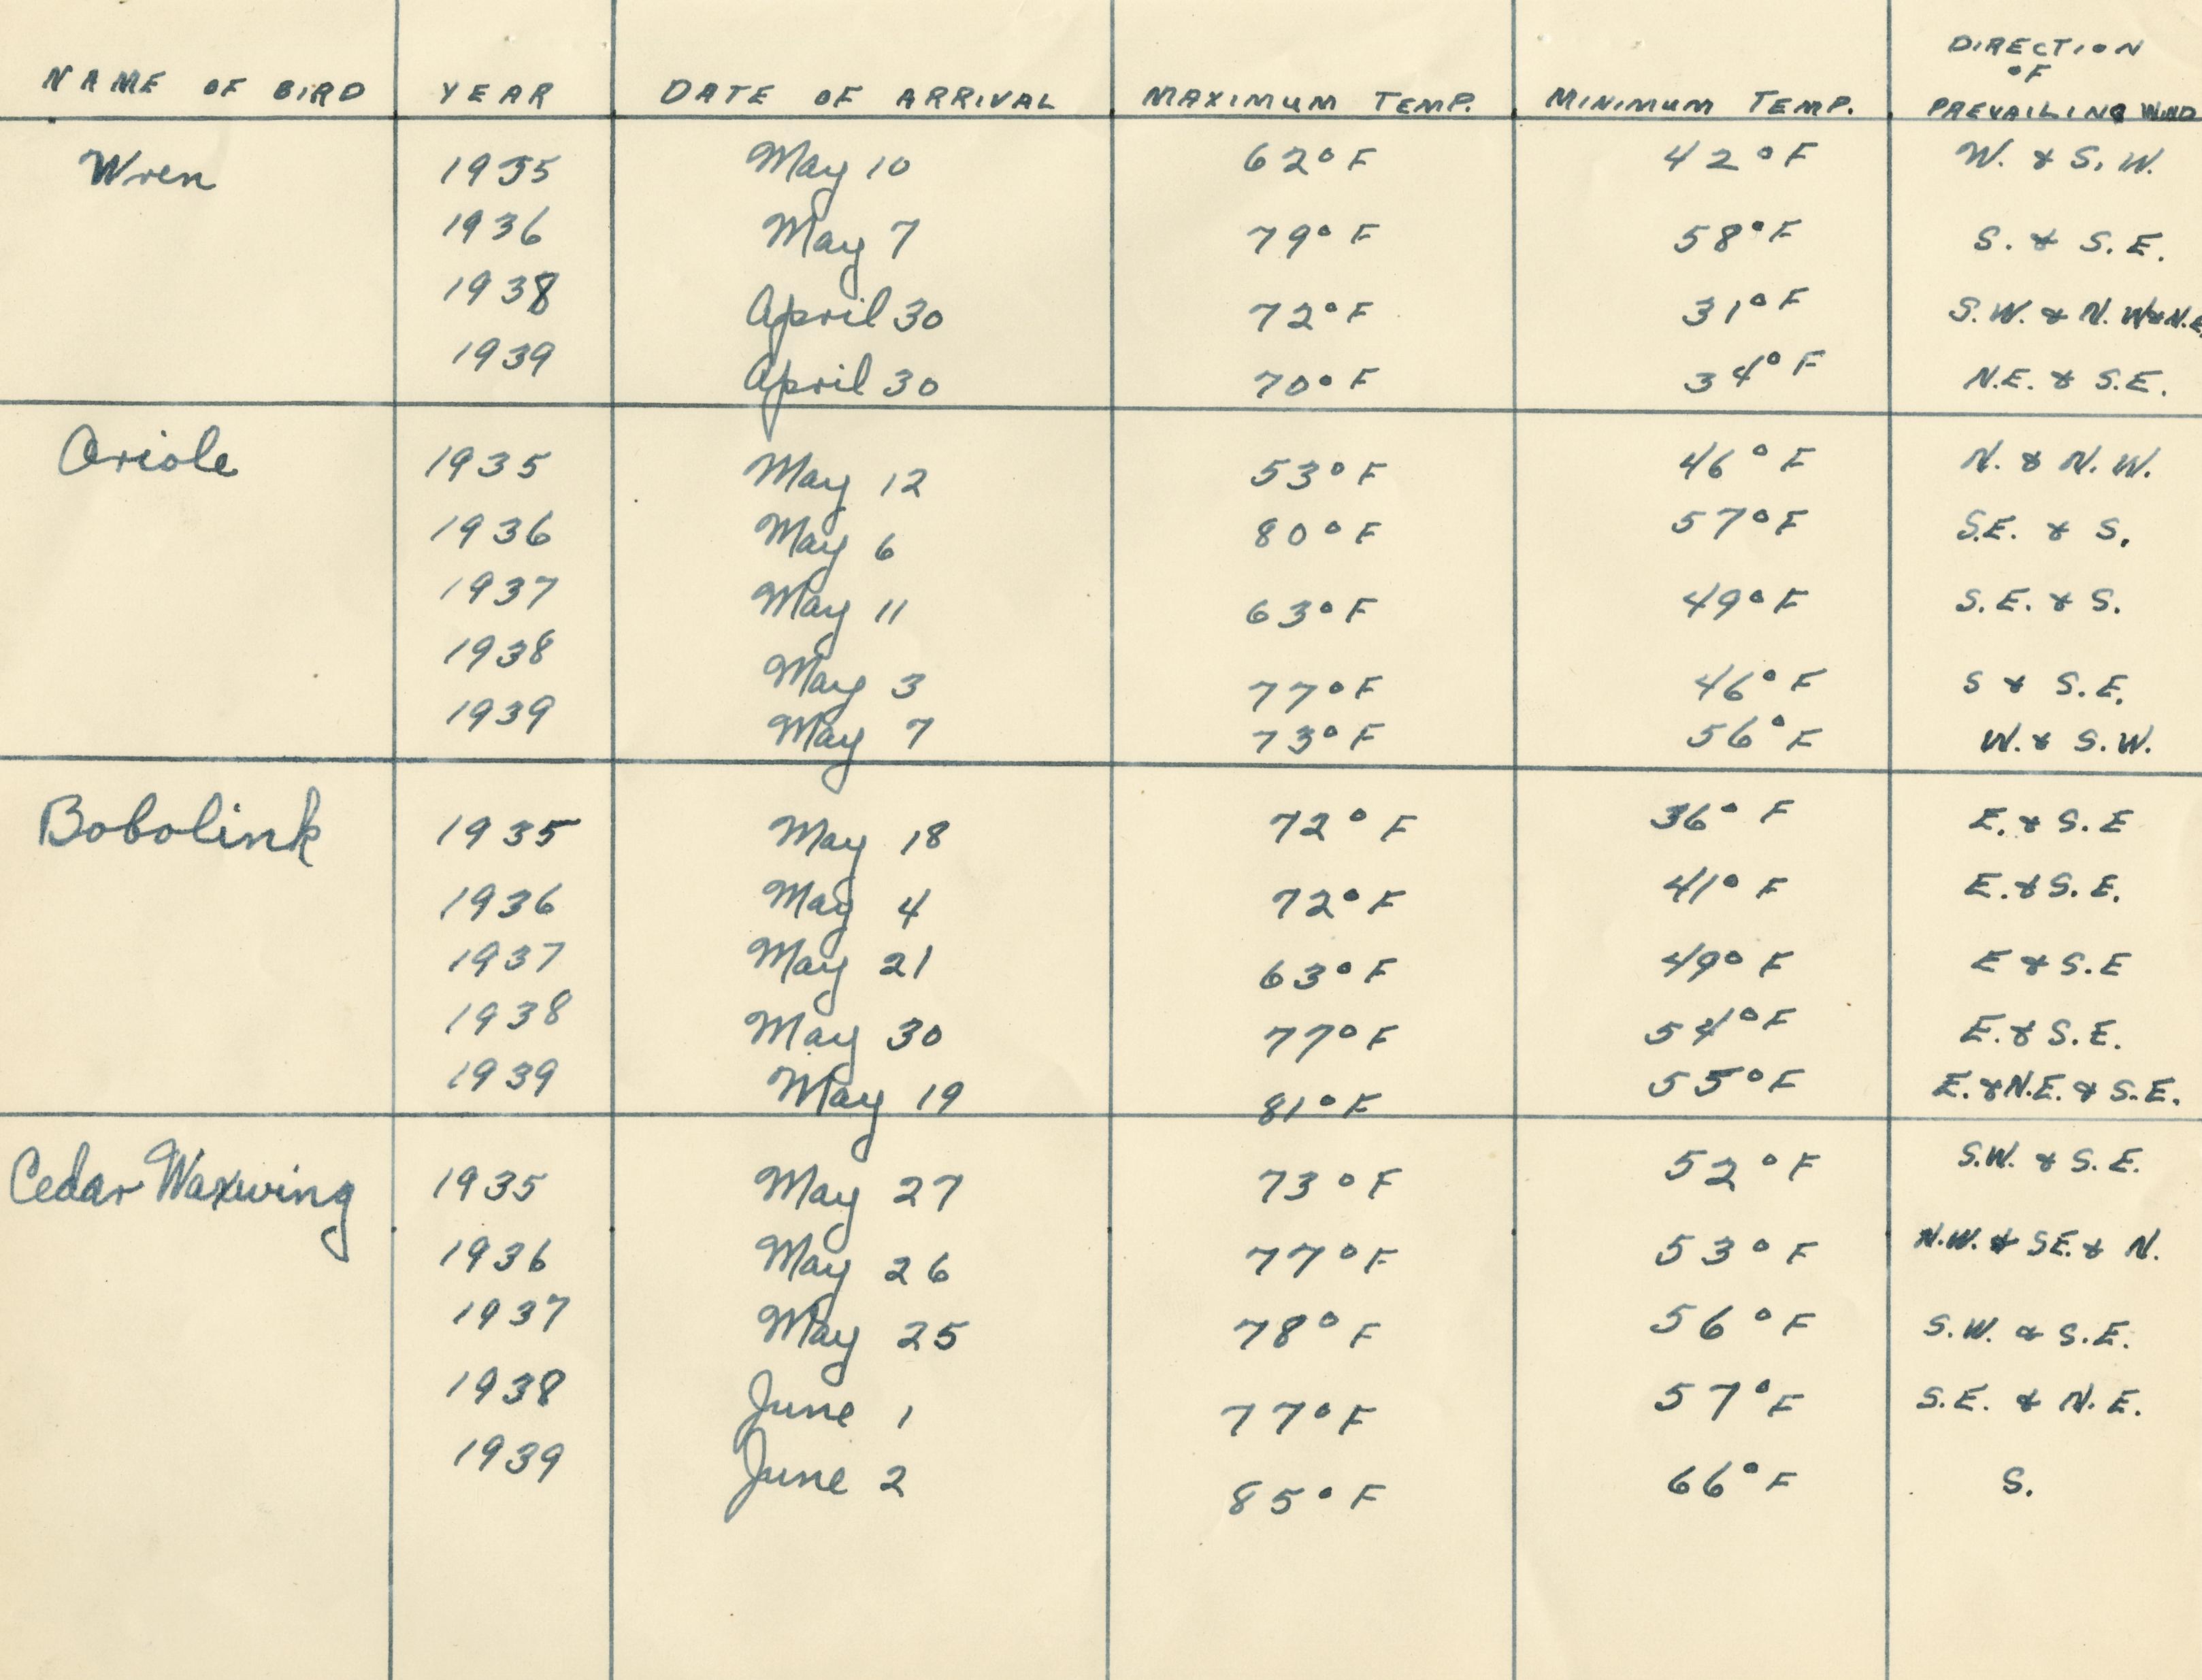 NAME OF BIRD YEAR DATE OF ARRIVAL MAXIMUM TEMP. MINIMUM TEMP. DIRECTION OF PREVAILING WIND
Wren 1935 May 10 62° F 42° F W. & S. W.
1936 May 7 79° F 58° F S. & S. E.
1938 April 30 72° F 31° F S. W. & N. W & N. E.
1939 April 30 70° F 34° F N.E. & S.E.
Oriole 1935 May 12 53° F 46° F N. & N. W.
1936 May 6 80° F 57° F S.E. & S.
1937 May 11 63° F 49° F S. E. & S.
1938 May 3 77° F 46° F S & S. E.
1939 May 7 73° F 56° F W. & S. W.
Bobolink 1935 May 18 72° F 36° F E. & S. E
1936 May 4 72° F 41° F E. & S. E.
1937 May 21 63° F 49° F E & S. E
1938 May 30 77° F 54° F E. & S. E.
1939 May 19 81° F 55° F E. & N.E. & S. E.
Cedar Waxwing 1935 May 27 73° F 52° F S.W. & S. E.
1936 May 26 77° F 53° F N.W. & SE. & N.
1937 May 25 78° F 56° F S.W. & S. E.
1938 June 1 77° F 57° F S. E. & N. E.
1939 June 2 85° F 66° F S.